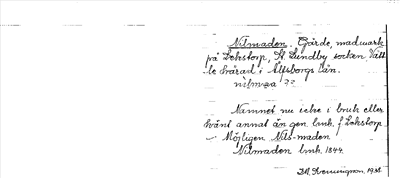 Nilmaden. Gärde, madmark
på Lekstorp, St Lundby socken, Vätt
le härad i Älfsborgs län.
nilmṣa ??
Namnet nu icke i bruk eller
känt annat än gen. lmk. f Lekstorp
Möjligen Nils-maden
Nilmaden lmk. 1844.
1931